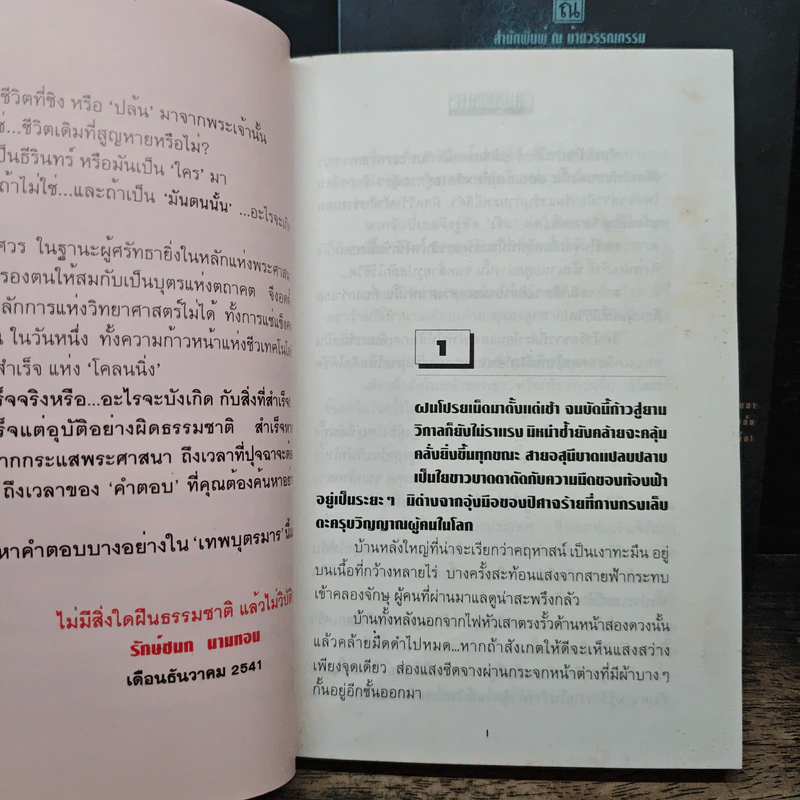 ณ
สำนักพิมพ์ ณ บ้านวรรณกรรม
ชีวิตที่ชิง หรือ ‘ปล้น’ มาจากพระเจ้านั้น
...ชีวิตเดิมที่สูญหายหรือไม่?
เป็นธีรินทร์ หรือมันเป็น ‘ใคร’ มา
ถ้าไม่ใช่...และถ้าเป็น ‘มันตนนั้น’ ...อะไรจะเกิด
ศวร ในฐานะผู้ศรัทธายิ่งในหลักแห่งพระศาสนา
รองตนให้สมกับเป็นบุตรแห่งตถาคต จึงอดตั้
ลักการแห่งวิทยาศาสตร์ไม่ได้ ทั้งการแช่แข็ง
ในวันหนึ่ง ทั้งความก้าวหน้าแห่งชีวเทคโนโลยี
สำเร็จ แห่ง ‘โคลนนิ่ง’
ร็จจริงหรือ...อะไรจะบังเกิด กับสิ่งที่สำเร็จ
ร็จแต่อุบัติอย่างผิดธรรมชาติ สำเร็จหา
ากกระแสพระศาสนา ถึงเวลาที่ปุจฉาจะต้อ
ถึงเวลาของ ‘คำตอบ’ ที่คุณต้องค้นหาอย่า
หาคำตอบบางอย่างใน ‘เทพบุตรมาร’ นี้
ไม่มีสิ่งใดฝืนธรรมชาติ แล้วไม่วิบัติ
รักษ์ชนก นามทอน
เดือนธันวาคม 2541
1
ฝนโปรยเม็ดมาตั้งแต่เช้า จนบัดนี้ก้าวสู่ยาม
วิกาลก็ยังไม่ราแรง มิหนำซ้ำยังคล้ายจะคลุ้ม
คลั่งยิ่งขึ้นทุกขณะ สายอสุนีบาดแปลบปลาบ
เป็นใยขาวบาดตาตัดกับความมืดของท้องฟ้า
อยู่เป็นระยะๆ มิต่างจากอุ้งมือของปีศาจร้ายที่กางกรงเล็บ
ตะครุบวิญญาณผู้คนในโลก
บ้านหลังใหญ่ที่น่าจะเรียกว่าคฤหาสน์ เป็นเงาทะมึน อยู่
บนเนื้อที่กว้างหลายไร่ บางครั้งสะท้อนแสงจากสายฟ้ากระทบ
เข้าคลองจักษุ ผู้คนที่ผ่านมาแลดูน่าสะพรึงกลัว
บ้านทั้งหลังนอกจากไฟหัวเสาตรงรั้วด้านหน้าสองดวงนั้น
แล้วคล้ายมืดดำไปหมด...หากถ้าสังเกตให้ดีจะเห็นแสงสว่าง
เพียงจุดเดียว ส่องแสงซีดจางผ่านกระจกหน้าต่างที่มีผ้าบางๆ
กั้นอยู่อีกชั้นออกมา
1